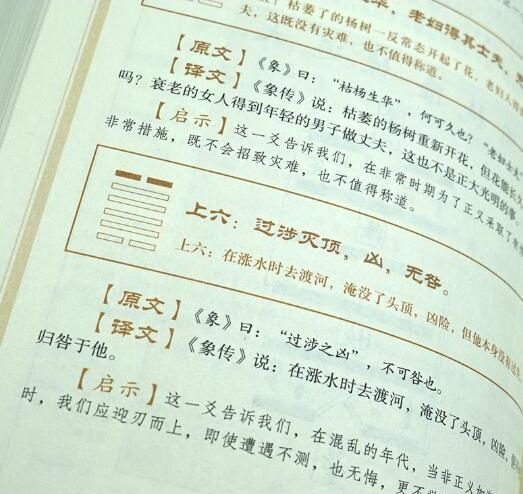 华，老妇得其士夫，无
五：枯萎了的杨树一反常态开起了花，老妇人
夫，这既没有灾难，也不值得称道。
【原文】《象》曰：“枯杨生华”，何可久也？“老妇士夫”
【译文】《象传》说：枯萎的杨树重新开花，但花能长久
吗？衰老的女人得到年轻的男子做丈夫，这也不是正大光明的事
【启示】这一爻告诉我们，在非常时期为了正义采取了有
非常措施，既不会招致灾难，也不值得称道。
上六：过涉灭顶，凶，无咎。
上六：在涨水时去渡河，淹没了头顶，凶险，但他本身没有过
【原文】《象》曰：“过涉之凶”，不可咎也。
【译文】《象传》说：在涨水时去渡河，淹没了头顶，凶险，
归咎于他。
【启示】这一爻告诉我们，在混乱的年代，当非正义
时，我们应迎刃而上，即使遭遇不测，也无悔，更不